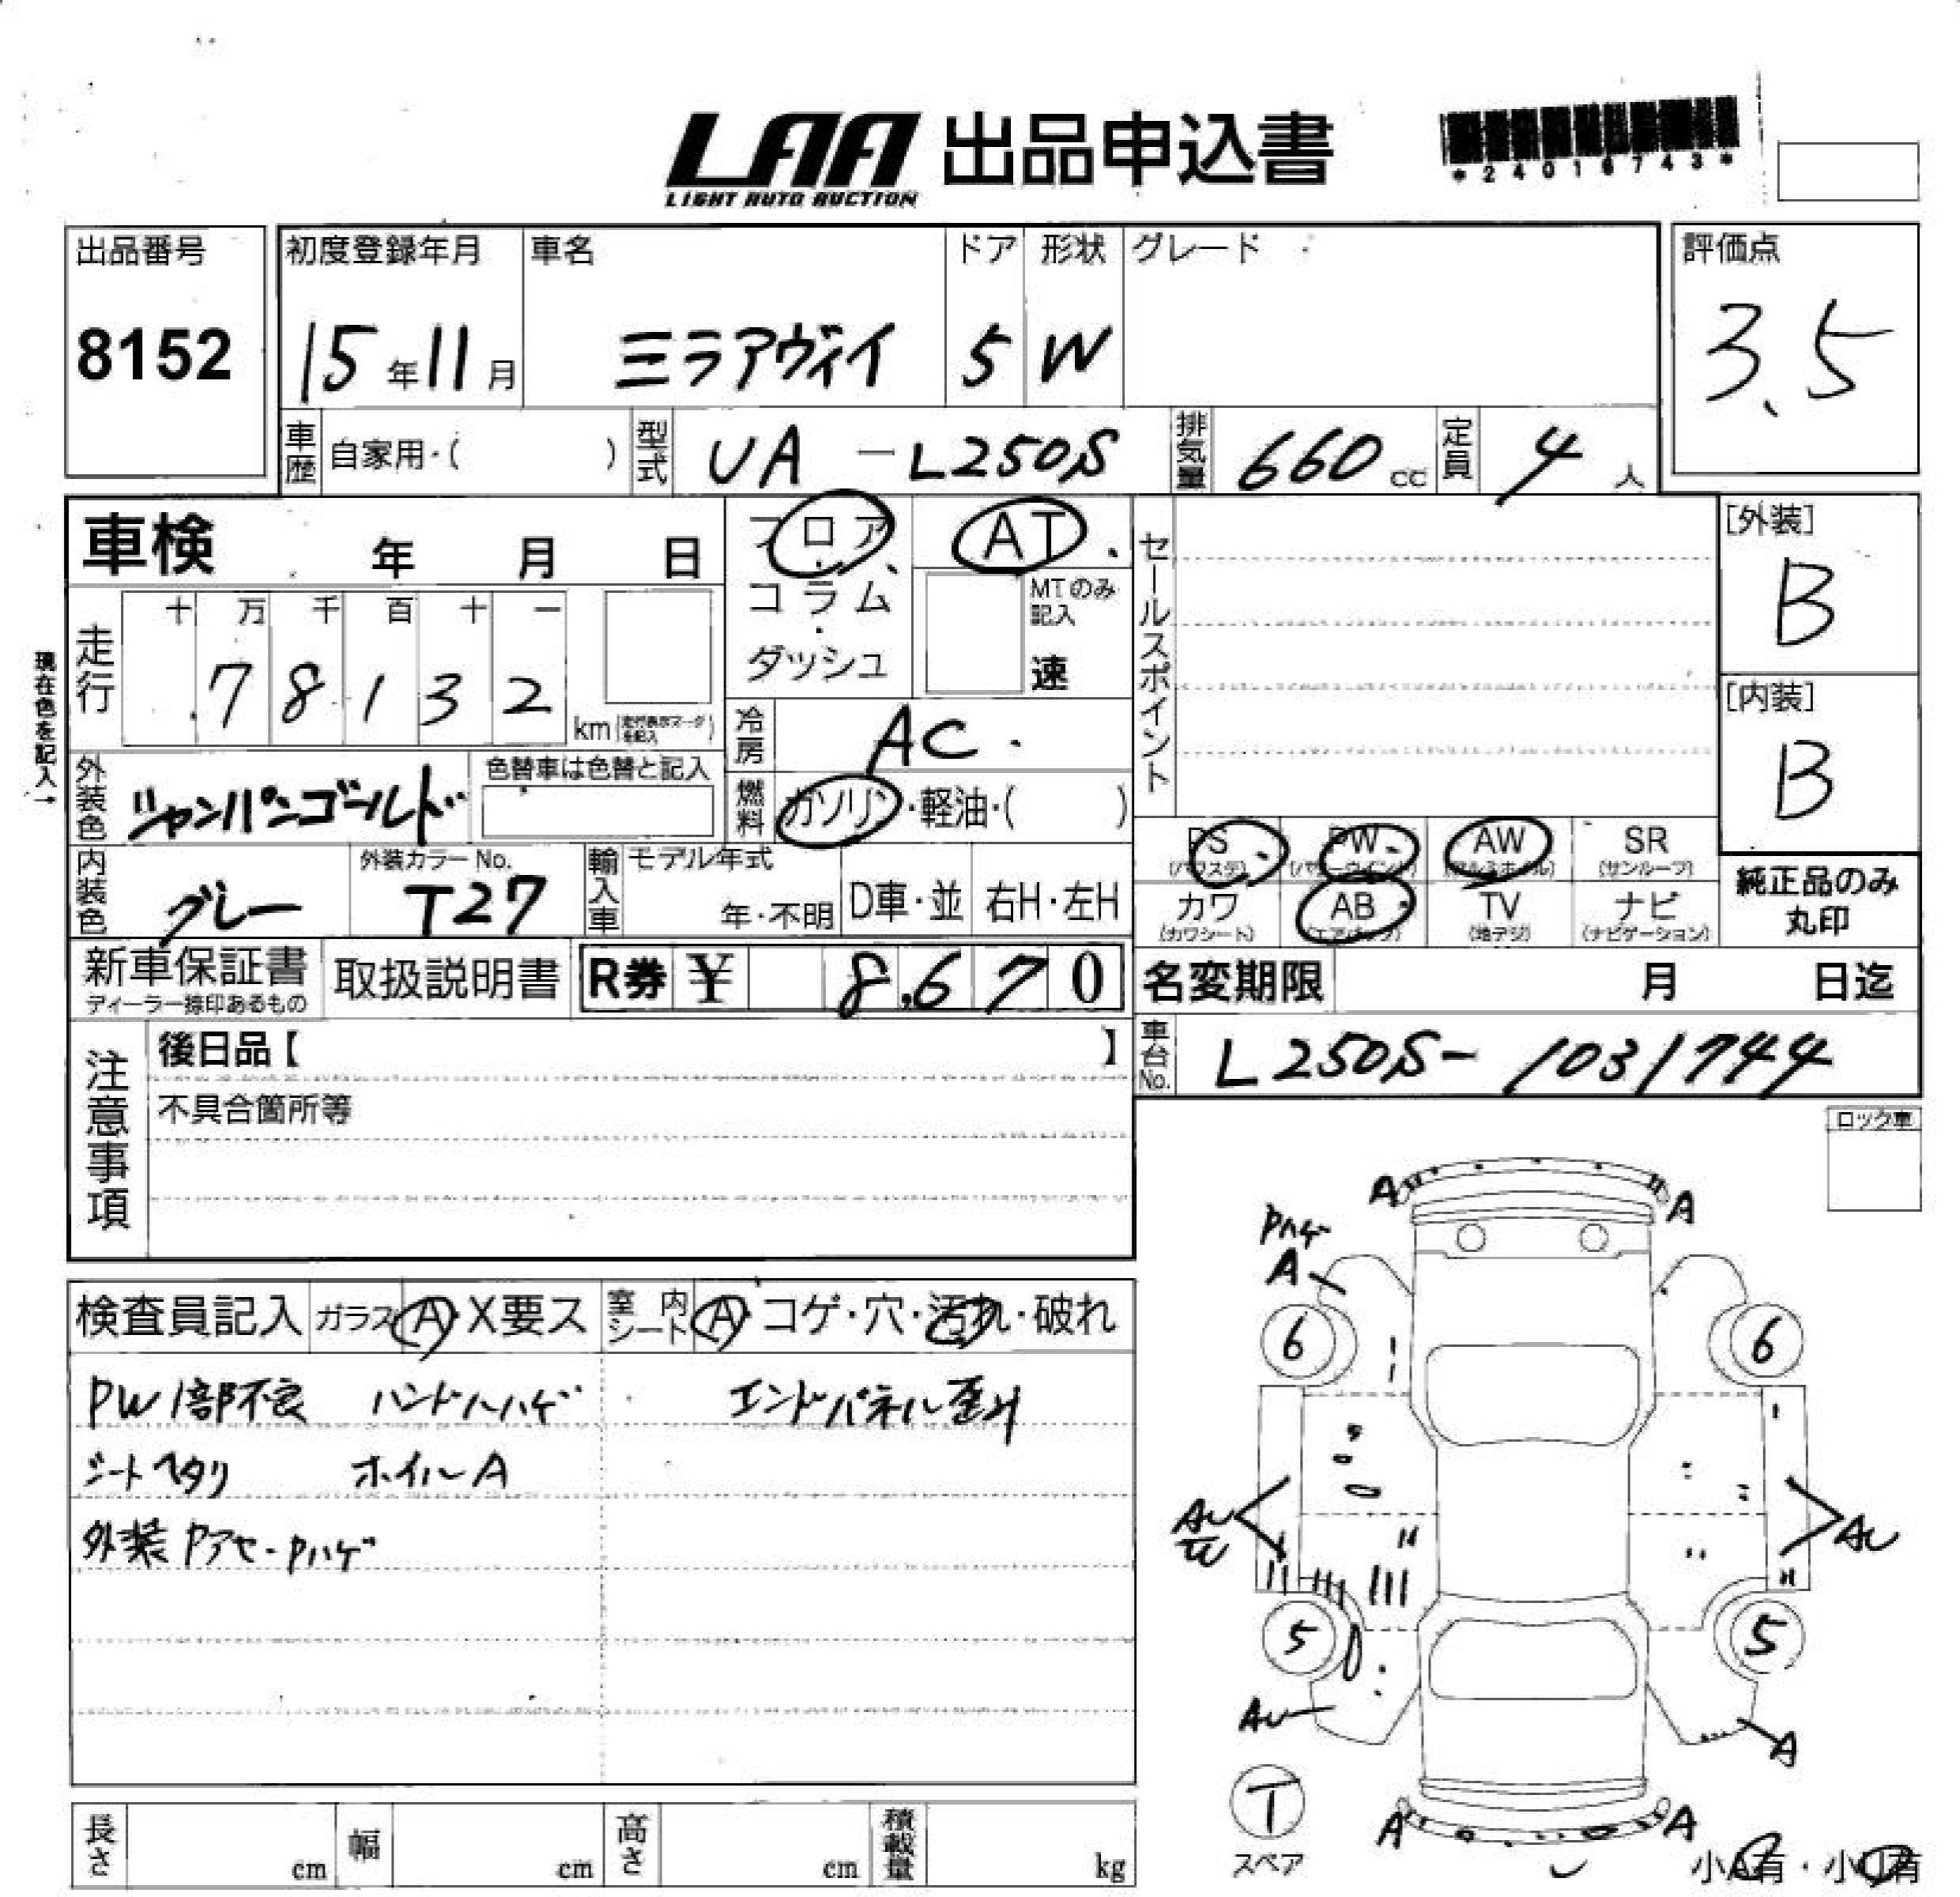 LAA 出品申込書
LIGHT AUTO AUCTION
*24016743*
出品番号
8152
初度登録年月
15年11月
車名
ミラアヴィイ
ドア
5
形状
W
グレード
評価点
3.5
車歴 自家用・( )
型式 UA-L250S
排気量 660cc
定員 4人
車検 年 月 日
フロア・コラム・ダッシュ
AT
MTのみ記入
速
セールスポイント
[外装]
B
[内装]
B
現在色を記入→
走行
十 万 千 百 十 一
7 8 1 3 2
km
冷房 AC
燃料 ガソリン・軽油・( )
外装色 シャンパンゴールド
色替車は色替と記入
内装色 グレー
外装カラーNo.
T27
輸入車 モデル年式
年・不明
D車・並 右H・左H
PS (パワステ) PW (パワーウインド) AW (アルミホイル) SR (サンルーフ)
カワ (カワシート) AB (エアバック) TV (地デジ) ナビ (ナビゲーション)
純正品のみ丸印
新車保証書
ディーラー捺印あるもの
取扱説明書
R券 ¥ 8,670
名変期限 月 日迄
車台No. L250S-1031744
注意事項
後日品【 】
不具合箇所等
ロック車
検査員記入 ガラス A・X要ス 室内シート A・コゲ・穴・汚れ・破れ
PW1部不良 ハンドルハゲ エンドパネル歪み
シートヘタリ ホイルA
外装Pアセ・Pハゲ
A A
Pハゲ
A
6 6
AU AU
5 5
AU A
T
スペア
A A
小A有・小U有
長さ cm 幅 cm 高さ cm 積載量 kg